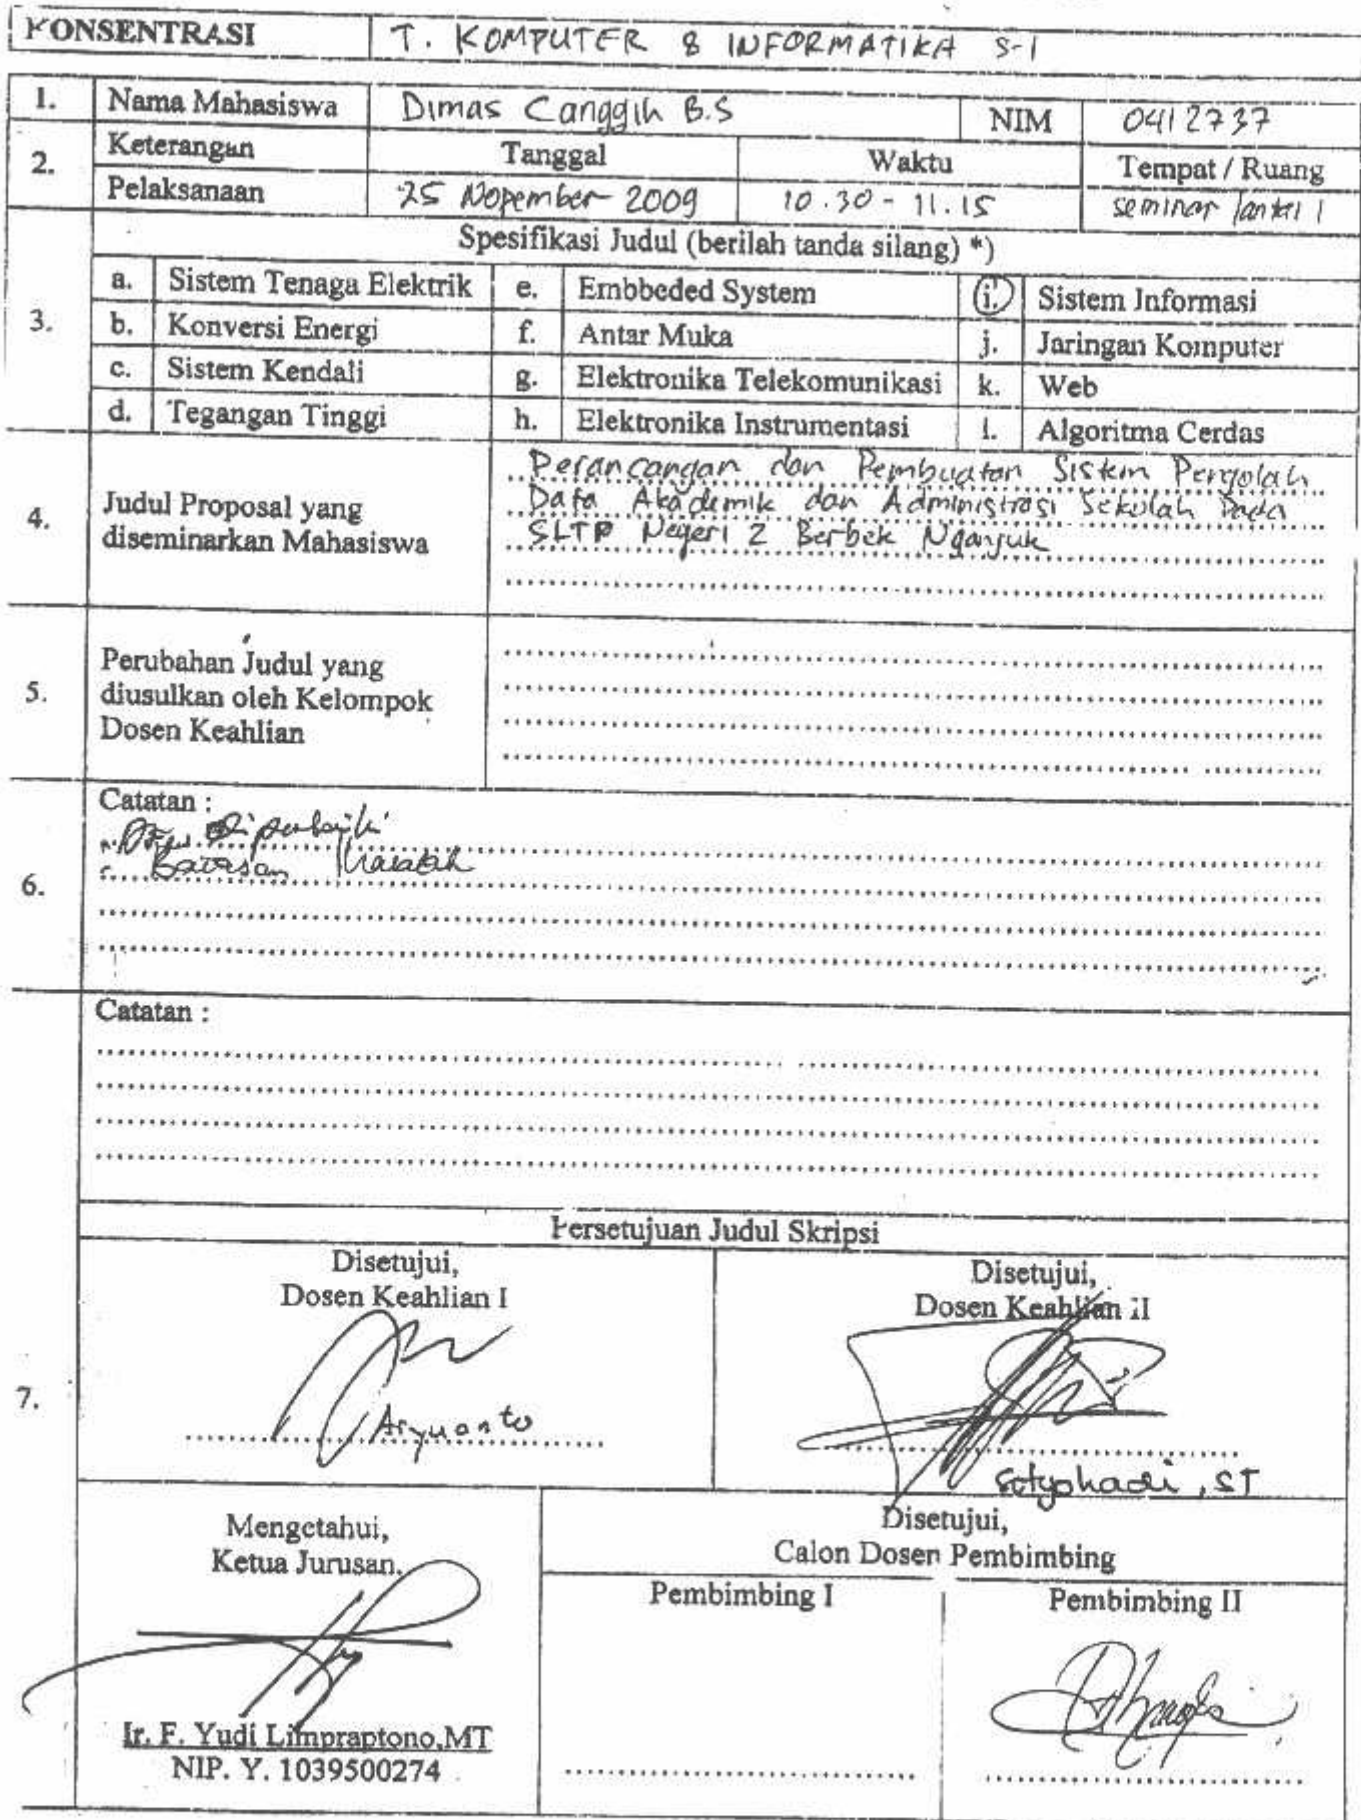 KONSENTRASI T. KOMPUTER & INFORMATIKA S-1
1. Nama Mahasiswa Dimas Canggih B.S NIM 0412737
2. Keterangan Tanggal Waktu Tempat / Ruang
Pelaksanaan 25 Nopember 2009 10.30 - 11.15 seminar lantai 1
Spesifikasi Judul (berilah tanda silang) *)
3.
a. Sistem Tenaga Elektrik e. Embbeded System i. Sistem Informasi
b. Konversi Energi f. Antar Muka j. Jaringan Komputer
c. Sistem Kendali g. Elektronika Telekomunikasi k. Web
d. Tegangan Tinggi h. Elektronika Instrumentasi l. Algoritma Cerdas
4. Judul Proposal yang
diseminarkan Mahasiswa
Perancangan dan Pembuatan Sistem Pengolah
Data Akademik dan Administrasi Sekolah Pada
SLTP Negeri 2 Berbek Nganjuk
5. Perubahan Judul yang
diusulkan oleh Kelompok
Dosen Keahlian
6. Catatan :
diperbaiki
Batasan Masalah
Catatan :
7. Persetujuan Judul Skripsi
Disetujui,
Dosen Keahlian I
Aryuanto
Disetujui,
Dosen Keahlian II
Sotyohadi, ST
Mengetahui,
Ketua Jurusan,
Ir. F. Yudi Limpraptono,MT
NIP. Y. 1039500274
Disetujui,
Calon Dosen Pembimbing
Pembimbing I Pembimbing II